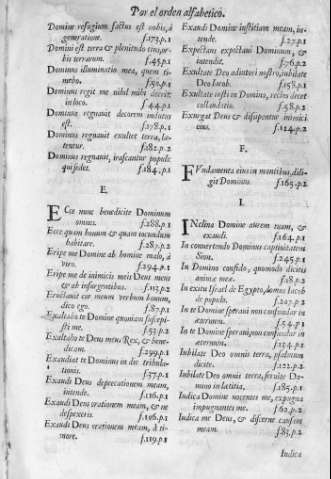 Por el orden alfabetico.
Domine refugium factus est nobis, à
generatione. f.173.p.1
Domini est terra & plenitudo eius, or-
bis terrarum. f.45.p.1
Dominus illuminatio mea, quem ti-
mebo. f.50.p.1
Dominus regit me nihil mihi deerit:
in loco. f.44.p.1
Dominus regnavit decorem indutus
est. f.178.p.1
Dominus regnavit exultet terra, læ-
tentur. f.182.p.2
Dominus regnavit, irascantur populi:
qui sedes. f.184.p.1
E.
ECce nunc benedicite Dominum
omnes. f.288.p.1
Ecce quam bonum & quam iucundum
habitare. f.287.p.2
Eripe me Domine ab homine malo, à
viro. f.294.p.1
Eripe me de inimicis meis Deus meus
& ab insurgentibus. f.113.p.2
Eructavit cor meum verbum bonum,
dico ego. f.87.p.1
Exaltabo te Domine quoniam suscepi-
sti me. f.53.p.2
Exaltabo te Deus meus Rex, & bene-
dicam. f.299.p.1
Exaudiat te Dominus in die tribula-
tionis. f.37.p.1
Exaudi Deus deprecationem meam,
intende. f.116.p.1
Exaudi Deus orationem meam, & ne
despexeris. f.106.p.1
Exaudi Deus orationem meam, à ti-
more. f.119.p.1
Exaudi Domine iustitiam meam, in-
tende. f.27.p.1
Expectans expectavi Dominum, &
intendit. f.76.p.2
Exultate Deo adiutori nostro, iubilate
Deo Iacob. f.158.p.1
Exultate iusti in Domino, rectos decet
collaudatio. f.58.p.1
Exurgat Deus & dissipentur inimici
eius. f.124.p.2
F.
FVndamenta eius in montibus, dili-
git Dominus. f.165.p.2
I.
INclina Domine aurem tuam, &
exaudi. f.164.p.1
In convertendo Dominus captivitatem
Sion. f.245.p.1
In Domino confido, quomodo dicitis
animæ meæ. f.18.p.2
In exitu Israel de Egypto, domus Iacob
de populo. f.207.p.2
In te Domine speravi non confundar in
æternum. f.54.p.1
In te Domine speravi non confundar in
æternum. f.134.p.1
Iubilate Deo omnis terra, psalmum
dicite. f.122.p.2
Iubilate Deo omnis terra, servite Do-
mino in lætitia. f.185.p.1
Iudica Domine nocentes me, expugna
impugnantes me. f.62.p.2
Iudica me Deus, & discerne causam
meam. f.83.p.2
Iudica